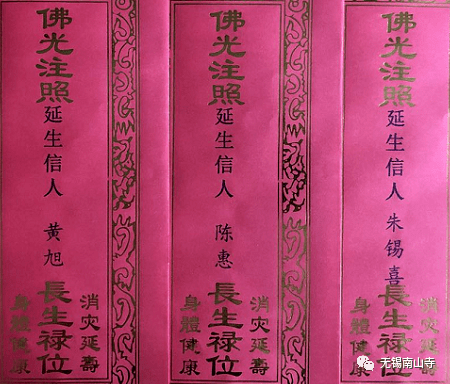 佛光注照
延生信人 黄旭
長生禄位
消灾延壽
身體健康
佛光注照
延生信人 陈惠
長生禄位
消灾延壽
身體健康
佛光注照
延生信人 朱锡喜
長生禄位
消灾延壽
身體健康
无锡南山寺